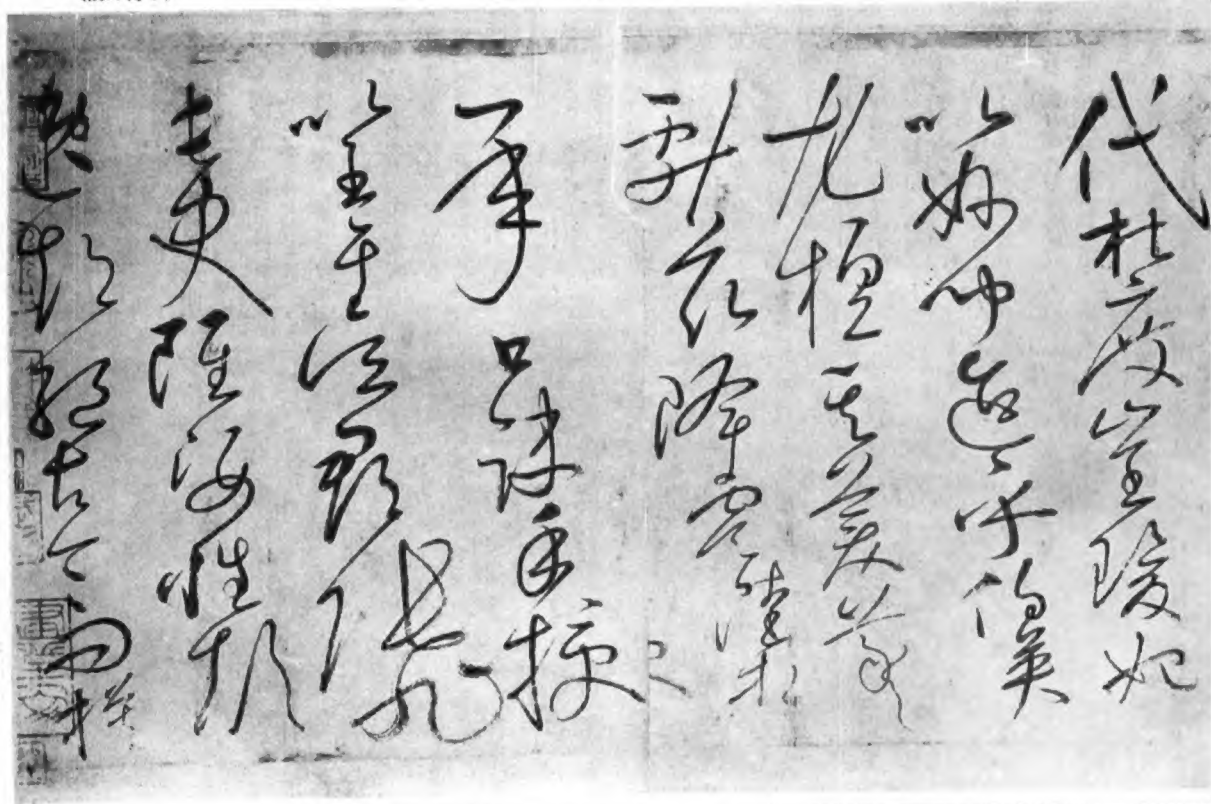 代杜度崔瑗始
以妙聞迨乎伯英
尤擅其美羲
獻茲降虞陸相
承口訣手授
以至于吳郡張旭
長史雖姿性顛
逸超絕古今而模